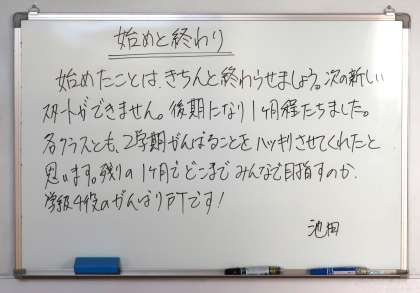 始めと終わり
始めたことは、きちんと終わらせましょう。次の新しい
スタートができません。後期になり1ヶ月経たちました。
各クラスとも、2学期がんばることをハッキリさせてくれたと
思います。残りの1ヶ月でどこまでみんなで目指すのか、
学級4役のがんばりPTです!
池田